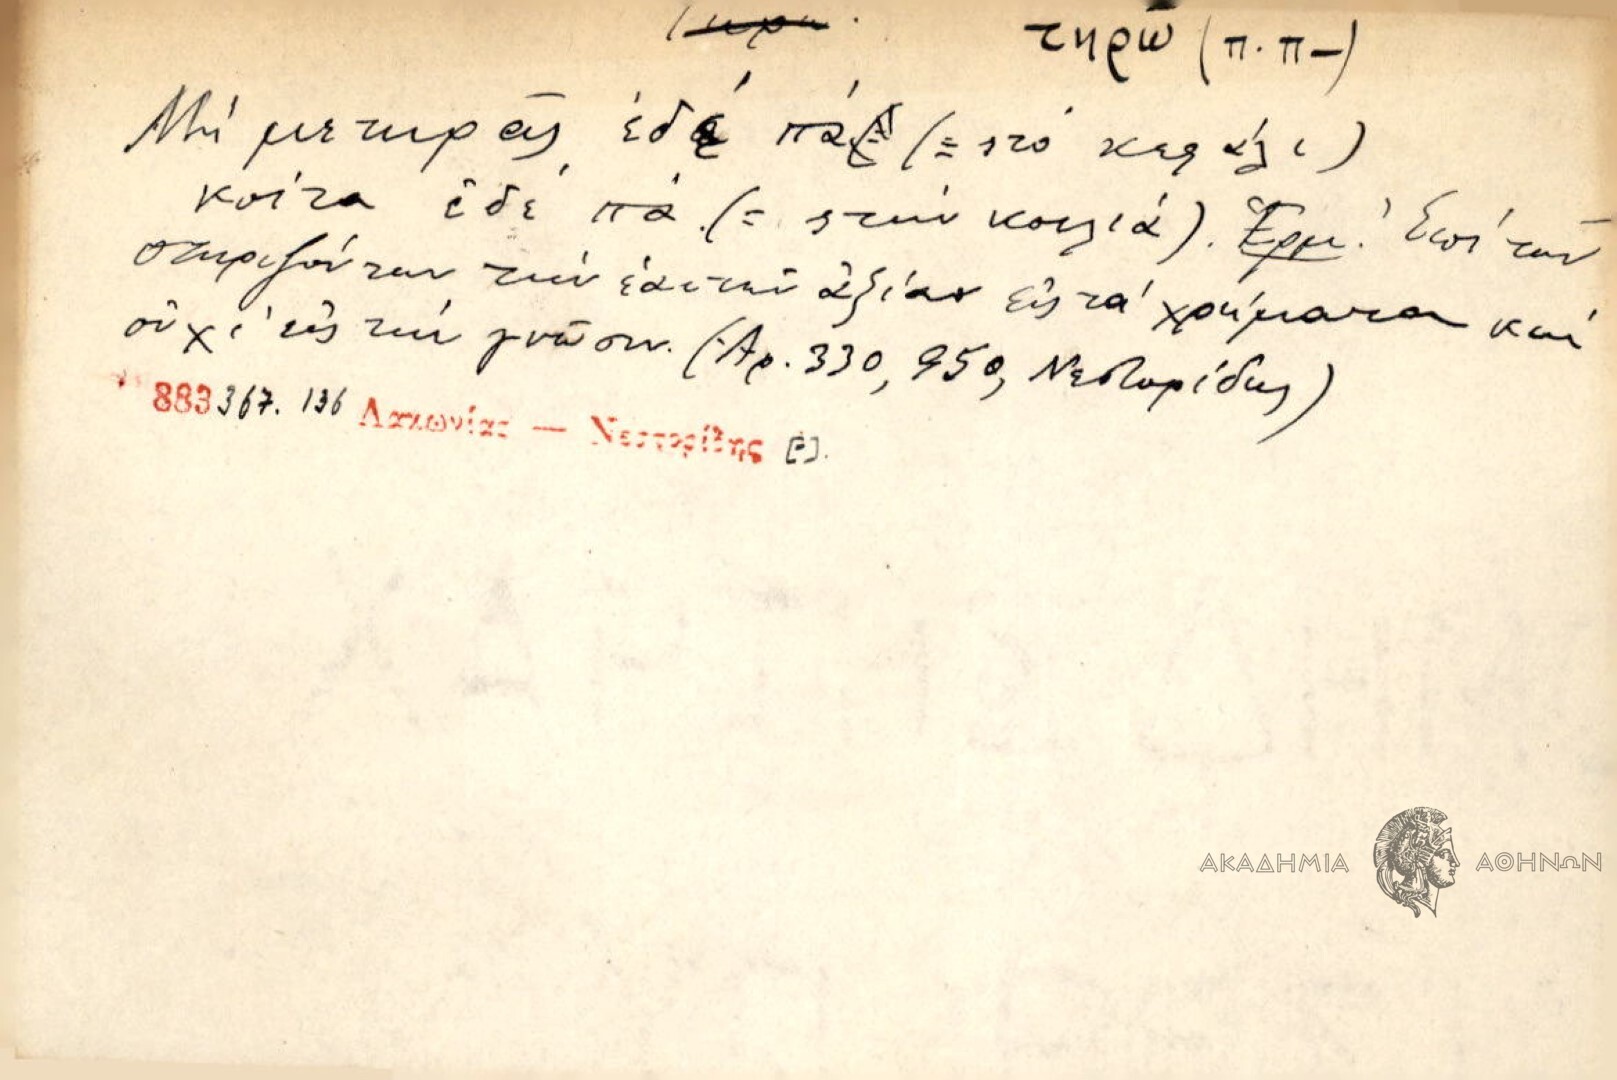 τηρῶ (π.π–)
Μή με τηρᾶς ἐδέ πά (= στό κεφάλι)
κοίτα ἐδέ πά (= στήν κοιλιά). Ἑρμ. Ἐπί τῶν
στηριζόντων τήν ἑαυτῶν ἀξίαν εἰς τά χρήματα καί
οὐχί εἰς τήν γνῶσιν. (Ἀρ. 330, 950, Νεστορίδης)
883 367. 136 Λακωνίας — Νεστορίδης
ΑΚΑΔΗΜΙΑ ΑΘΗΝΩΝ